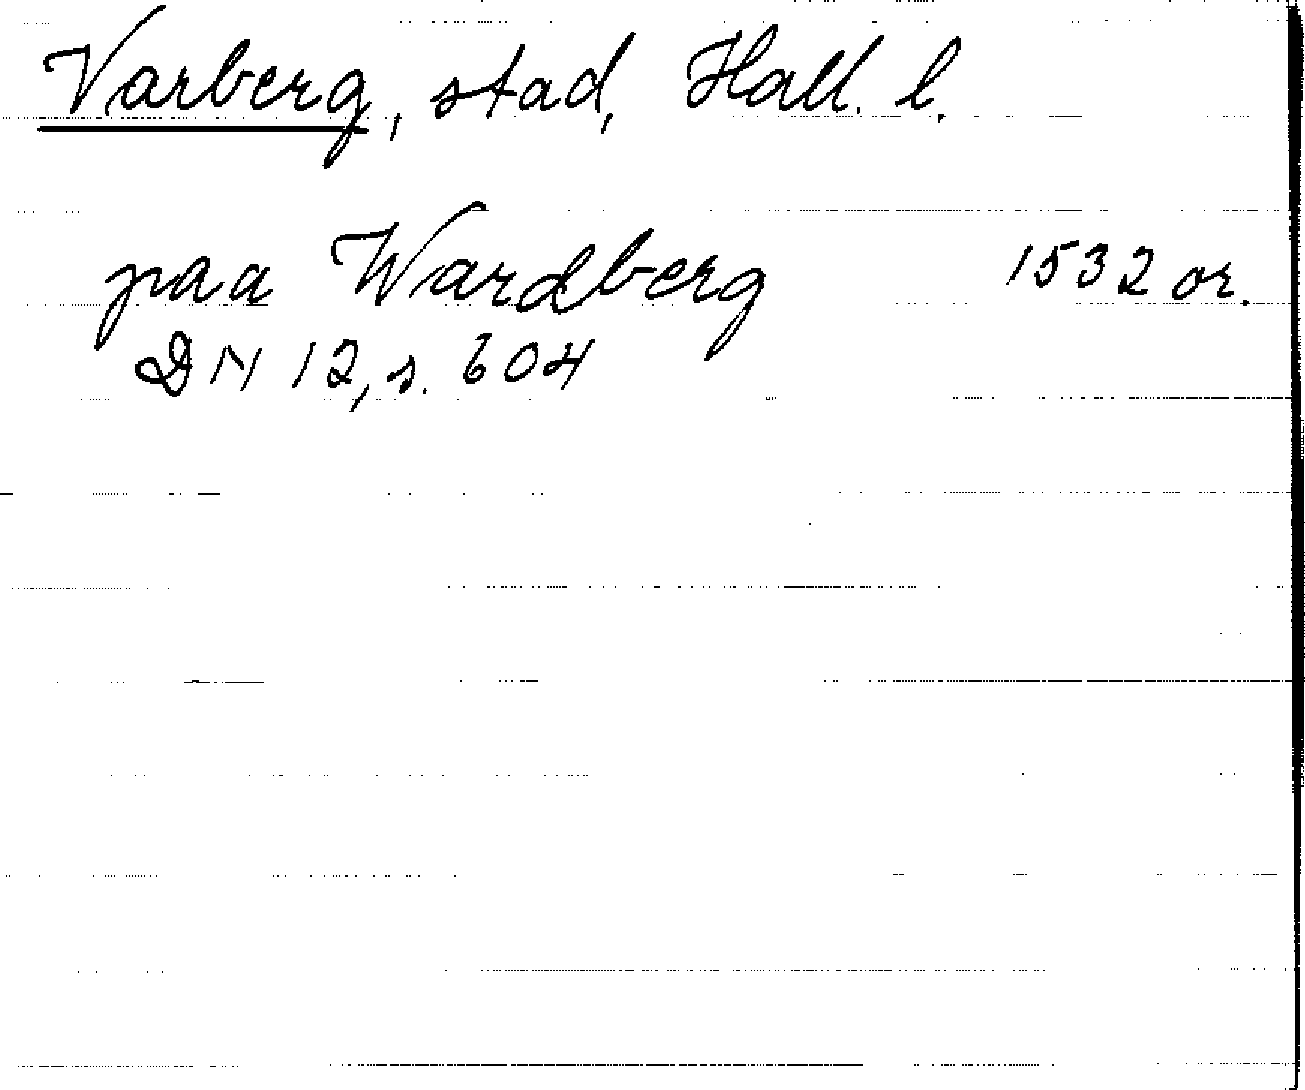 Varberg, stad, Hall. l.
paa Wardberg 1532 or.
DN 12, s. 604